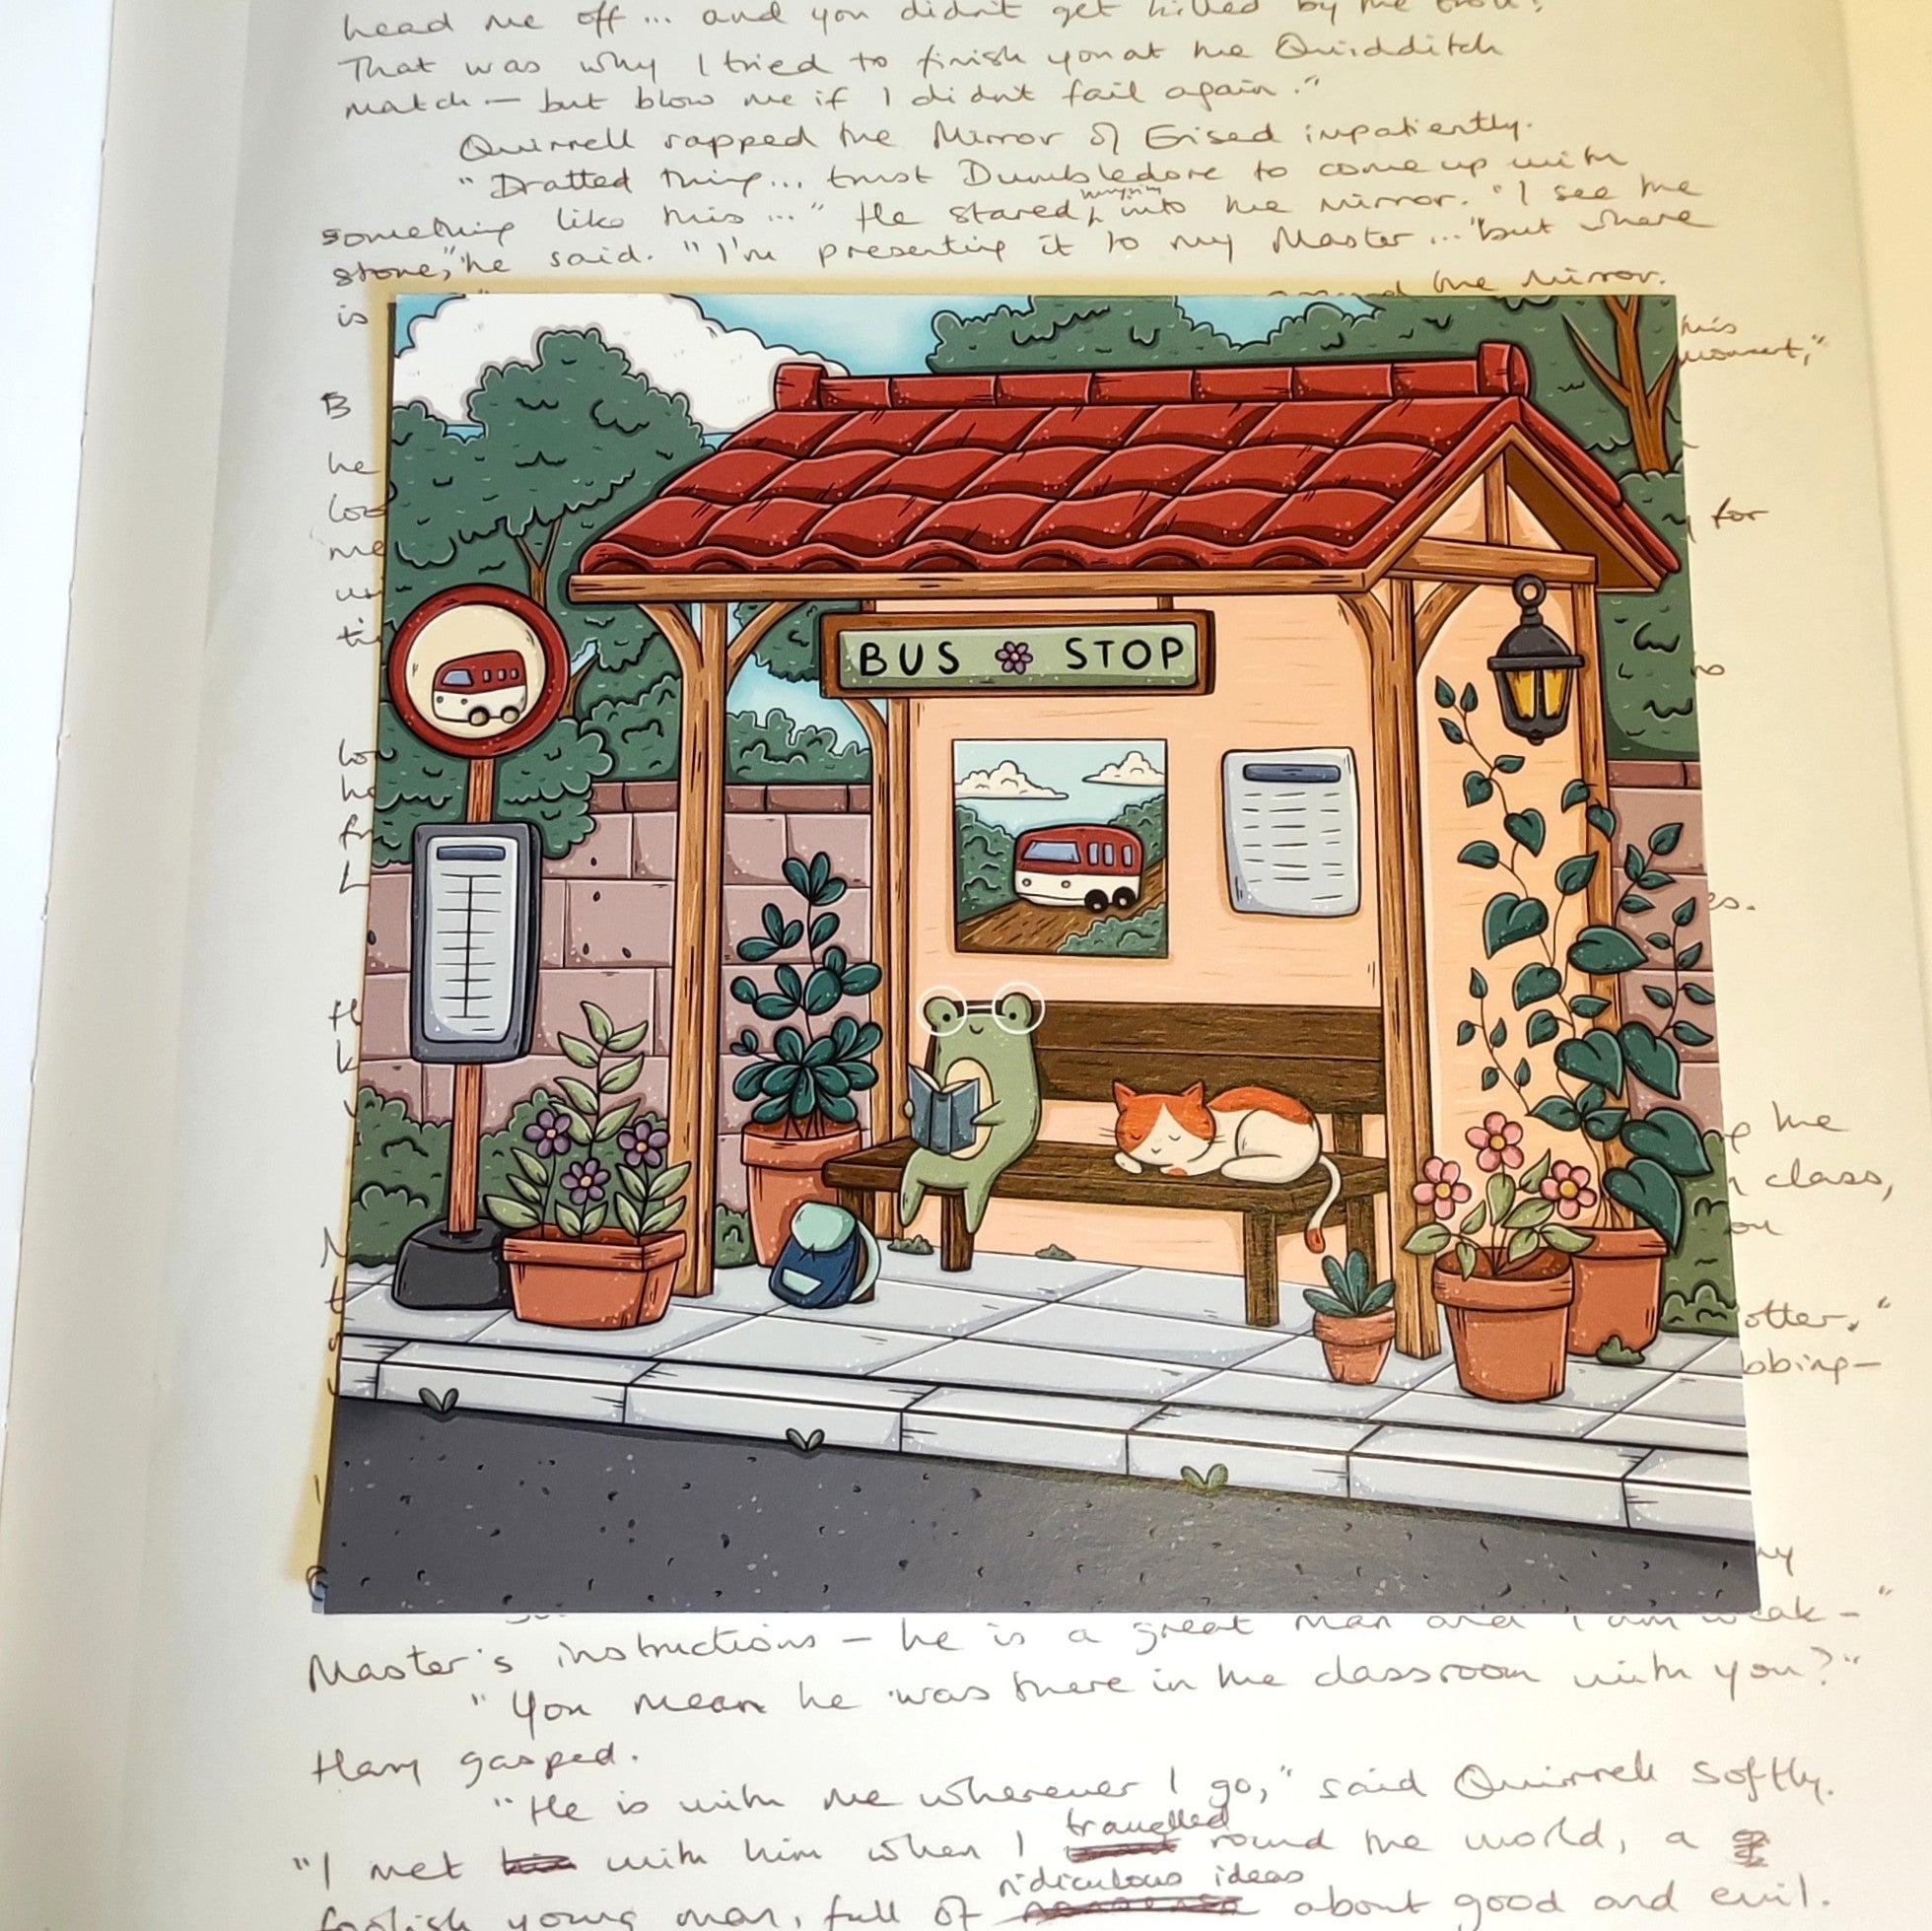 head me off... and you didn't get killed by the troll.
That was why I tried to finish you at the Quidditch
match — but blow me if I didn't fail again."
Quirrell rapped the Mirror of Erised impatiently.
"Dratted thing... trust Dumbledore to come up with
something like this..." He stared hungrily into the mirror. "I see the
stone," he said. "I'm presenting it to my Master... but where
is
around the mirror.
his
moment,"
B
he
for
me
BUS STOP
es.
the
class,
you
otter."
bbing—
Master's instructions — he is a great man and I am weak—"
"You mean he was there in the classroom with you?"
Harry gasped.
"He is with me wherever I go," said Quirrell softly.
"I met with him when I travelled round the world, a
foolish young man, full of ridiculous ideas about good and evil.